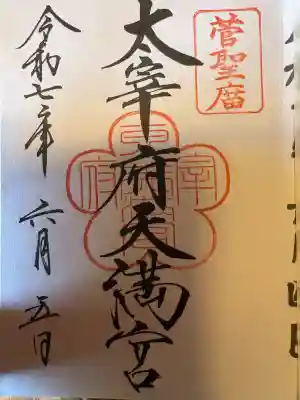 菅聖廟
太宰府天満宮
令和七年 六月五日